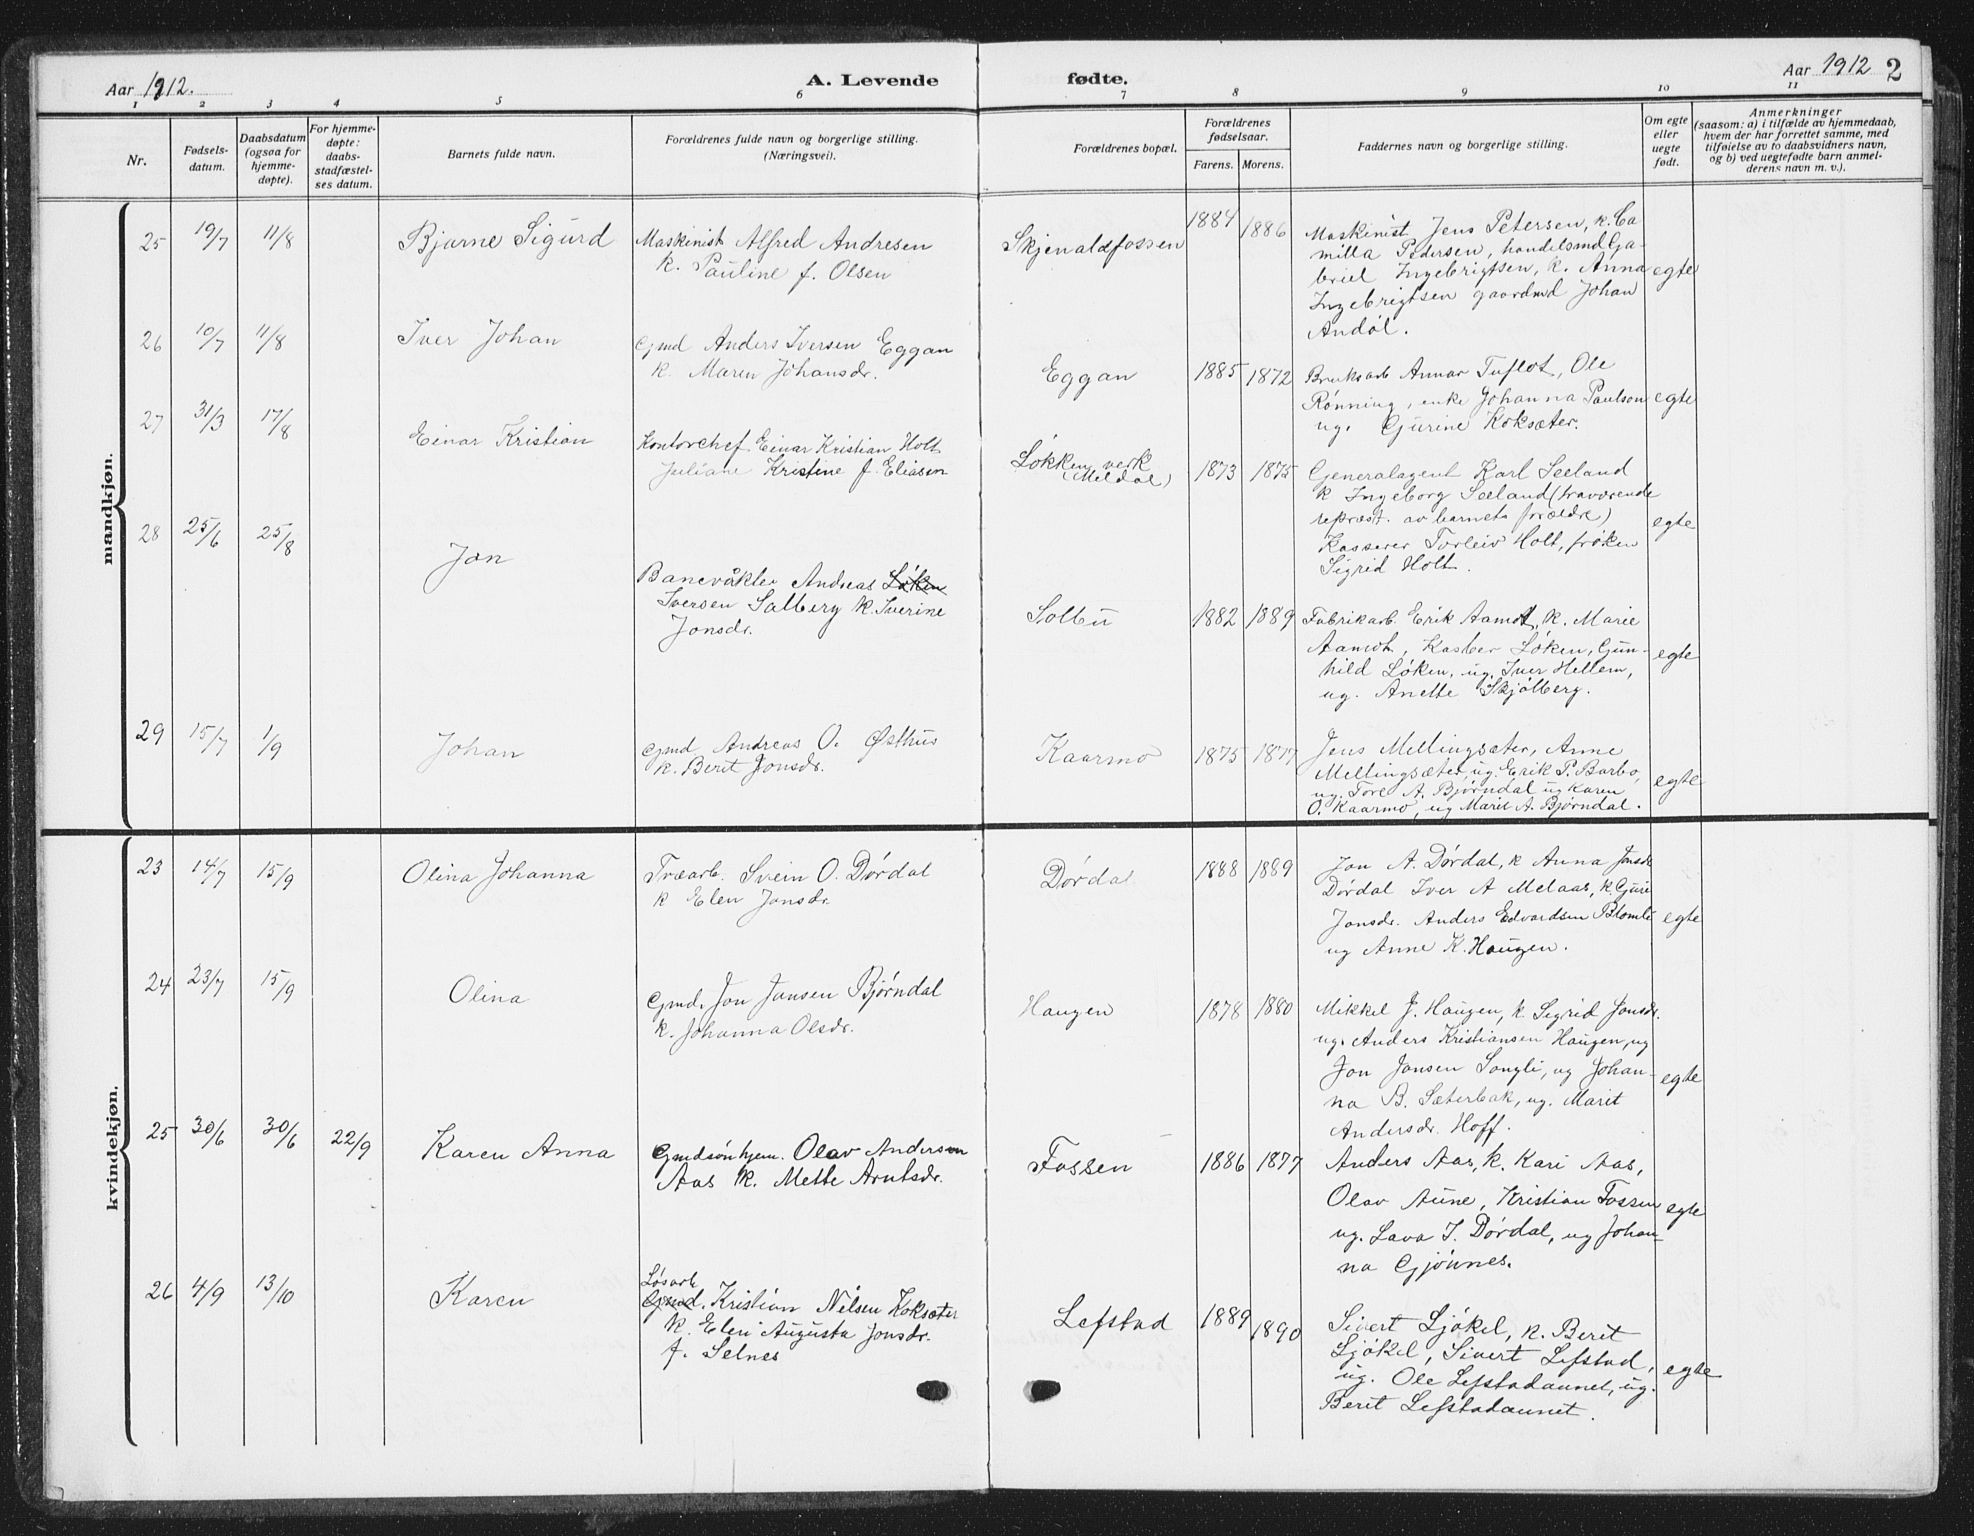 Aar 1912.
A. Levende fødte.
Aar 1912 2
1 2 3 4 5 6 7 8 9 10 11
Nr.
Fødsels-
datum.
Daabsdatum
(ogsaa for
hjemme-
døpte).
For hjemme-
døpte:
daabs-
stadfæstel-
ses datum.
Barnets fulde navn.
Forældrenes fulde navn og borgerlige stilling.
(Næringsvei).
Forældrenes bopæl.
Forældrenes
fødselsaar.
Farens. Morens.
Faddernes navn og borgerlige stilling.
Om egte
eller
uegte
født.
Anmerkninger
(saasom: a) i tilfælde av hjemmedaab,
hvem der har forrettet samme, med
tilføielse av to daabsvidners navn,
og b) ved uegtefødte barn anmel-
derens navn m. v.).
mandkjøn.
25 19/7 11/8 Bjarne Sigurd
Maskinist Alfred Andresen
k. Pauline f. Olsen
Skjenaldfossen 1884 1886
Maskinist Jens Petersen, k. Ca
milla Pedersen, handelsmd Ga-
briel Ingebrigtsen, k. Anna
Ingebrigtsen gaardmd Johan
Andøl.
egte
26 10/7 11/8 Iver Johan
Gmd Anders Iversen Eggan
k. Maren Johansdr.
Eggan 1885 1872
Bruksarb Annar Tuflot, Ole
Rønning, enke Johanna Paulson
ug. Gurine Koksæter.
egte
27 31/3 17/8 Einar Kristian
Kontorchef Einar Kristian Holt
Juliane Kristine f. Eliasen
Løkken verk
(Meldal)
1873 1875
Generalagent Karl Seeland
k Ingeborg Seeland (fraværende
repræst. av barnets forældre)
Kasserer Torleiv Holt, frøken
Sigrid Holt.
egte
28 25/6 25/8 Jon
Banevakter Andreas Løken
Iversen Solberg k. Iverine
Jonsdr.
Solbu 1882 1889
Fabrikarb. Erik Aamot, k. Marie
Aamot, Kasber Løken, Gun-
hild Løken, ug. Iver Hellem,
ug. Anette Skjølberg.
egte
29 15/7 1/9 Johan
Gmd Andreas O. Østhus
k. Berit Jonsdr.
Kaarmo 1875 1877
Jens Mellingsæter, Anne
Mellingsæter, ug. Erik P. Barbo,
ug. Tore A. Bjørndal ug Karen
O. Kaarmo, ug Marit A. Bjørndal.
egte
kvindekjøn.
23 14/7 15/9 Olina Johanna
Træarb. Svein O. Dørdal
k Elen Jonsdr.
Dørdal 1888 1889
Jon A. Dørdal, k Anna Jonsdr
Dørdal Iver A Melaas, k. Guri
Jonsdr. Anders Edvardsen Blomli
ug Anne K. Haugen.
egte
24 23/7 15/9 Olina
Gmd. Jon Jonsen Bjørndal
k. Johanna Olsdr.
Haugen 1878 1880
Mikkel J. Haugen, k. Sigrid Jonsdr.
ug. Anders Kristiansen Haugen, ug
Jon Jonsen Songli, ug Johan-
na B. Sæterbak, ug. Marit
Andersdr. Hoff.
egte
25 30/6 30/6 22/9 Karen Anna
Gmdsønhjem. Olav Andersen
Aas k. Mette Arntsdr.
Fossen 1886 1877
Anders Aas, k. Kari Aas,
Olav Aune, Kristian Fossen
ug. Lava I. Dørdal, ug Johan-
na Gjønnes.
egte
26 4/9 13/10 Karen
Løsarb
Gmd. Kristian Nilsen Koksæter
k. Elen Augusta Jonsdr.
f. Selnes
Lefstad 1889 1890
Sivert Ljøkel, k. Berit
Ljøkel, Sivert Lefstad,
ug. Ole Lefstadaunet, ug.
Berit Lefstadaunet.
egte